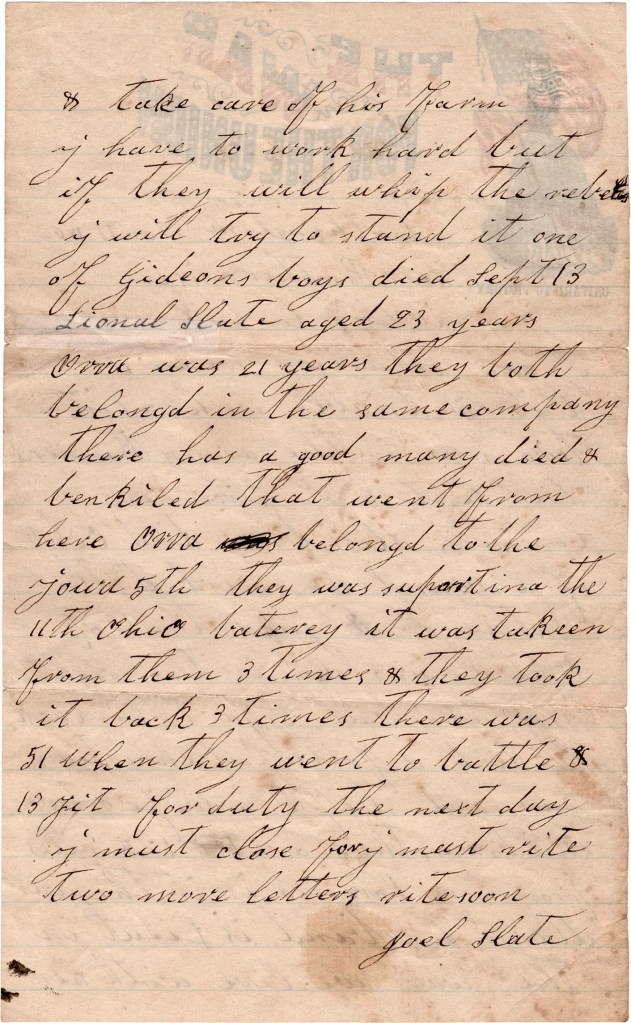 & take care of his farm
ij have to work hard but
if they will whip the rebels
ij will try to stand it one
of Gideons boys died Sept 13
Lional Slate aged 23 years
Orva was 21 years they both
belongd in the same company
there has a good many died &
benkiled that went from
here Orva belongd to the
jowa 5th they was suportina the
11th Ohio baterey it was takeen
from them 3 times & they took
it back 3 times there was
51 when they went to battle &
13 fit for duty the next day
ij must close for ij must rite
two more letters rite soon
Joel Slate